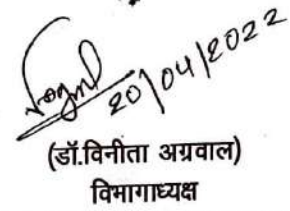 20/04/2022
(डॉ.विनीता अग्रवाल)
विभागाध्यक्ष